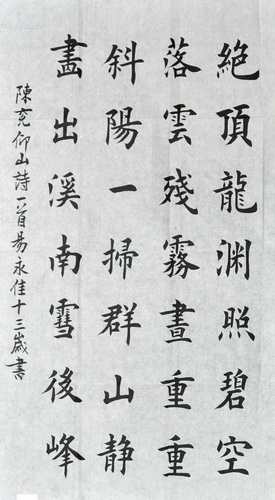 絶頂龍渊照碧空
落雲殘霧晝重重
斜陽一掃群山静
畵出溪南雪後峰
陳克仰山詩一首易永佳十三歲書